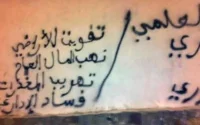 العلمي
ري
وري
تفويت للأراضي
نهب المال العام
تهريب المخدرات
فساد الإدارة